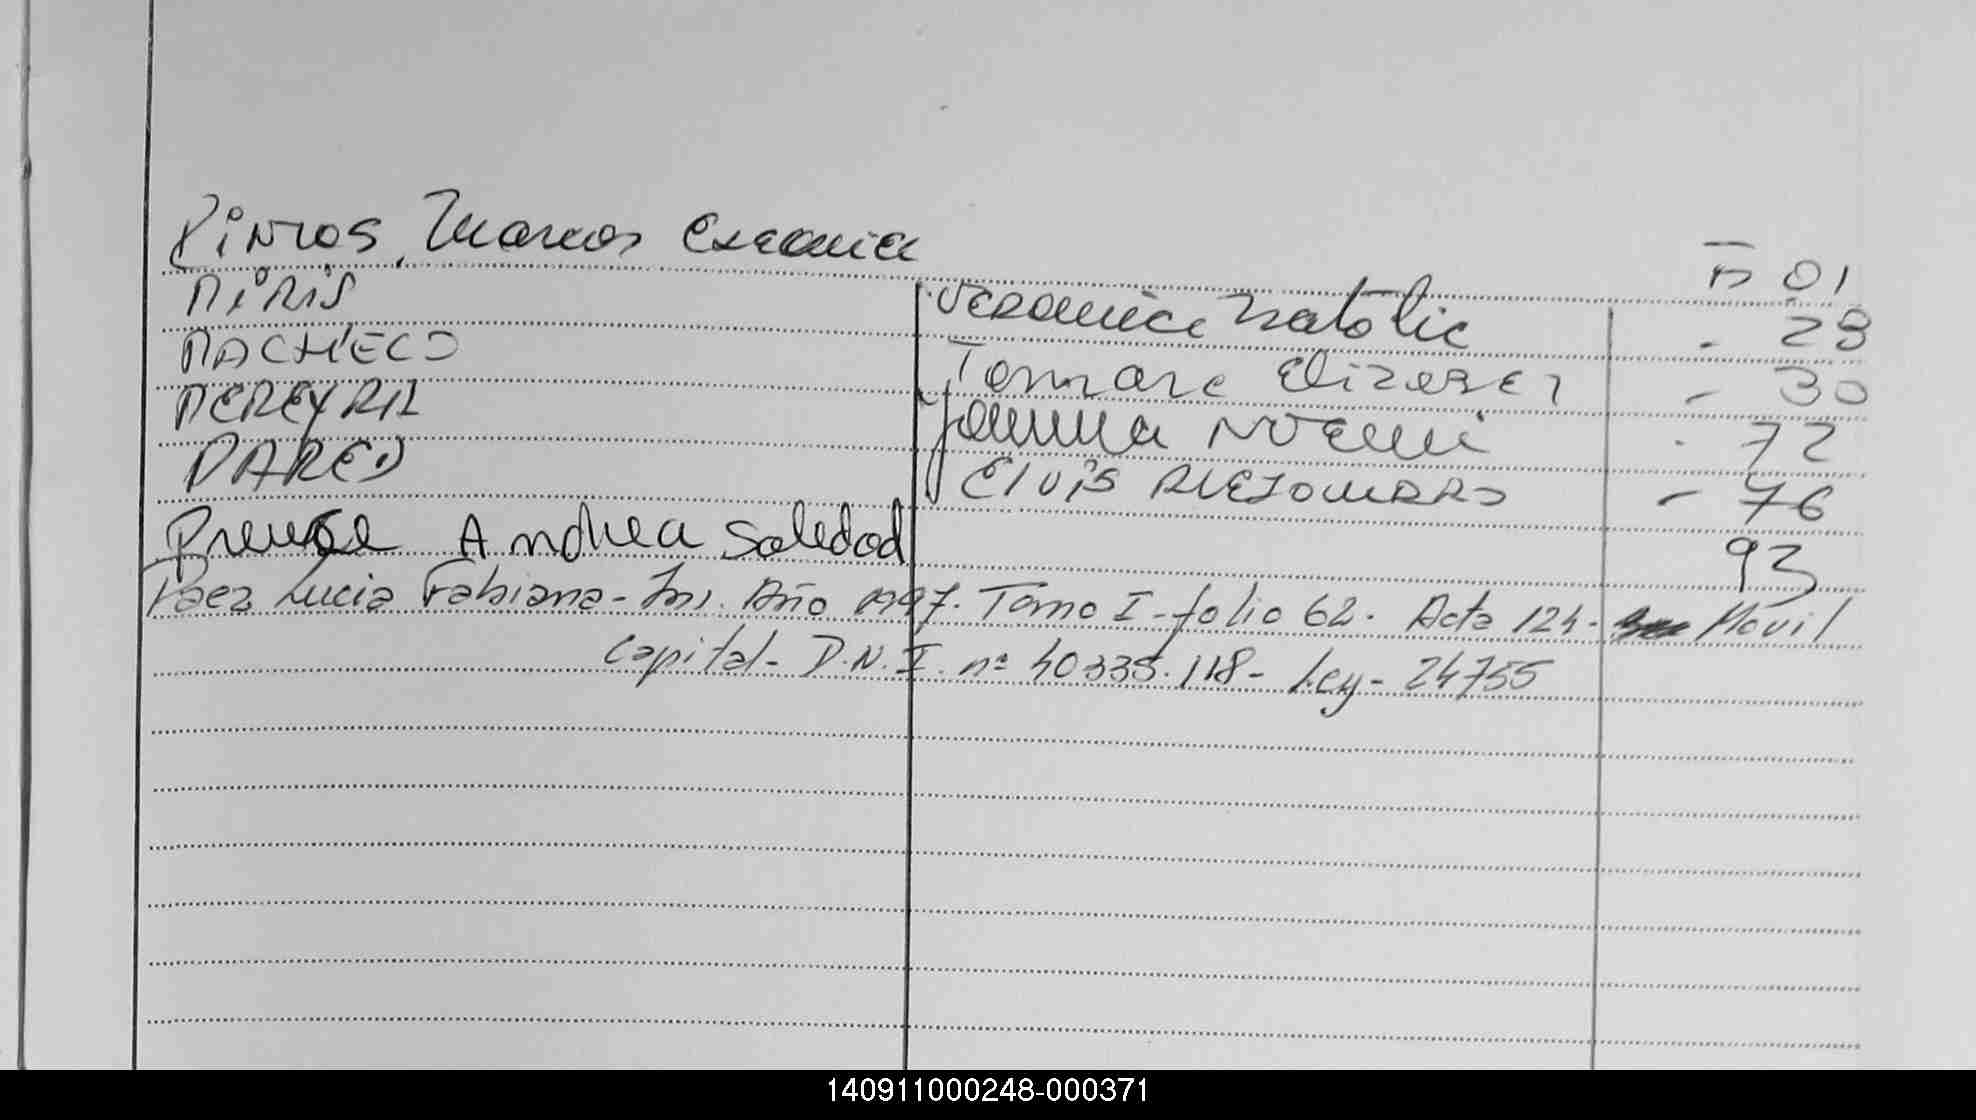 Pintos, Marcos Exequiel n 01
PIRIS Veronica Natalie - 28
PACHECO Tamara Elizabet - 30
PEREYRA Yanina Noemi - 72
PARED Elvis Alejandro - 76
Andrea Soledad 93
Paez Lucia Fabiana - Ins. Año 1997. Tomo I - folio 62. Acta 124 - Móvil
Capital - D.N.I. nº 40335.118 - Ley - 24755
140911000248-000371